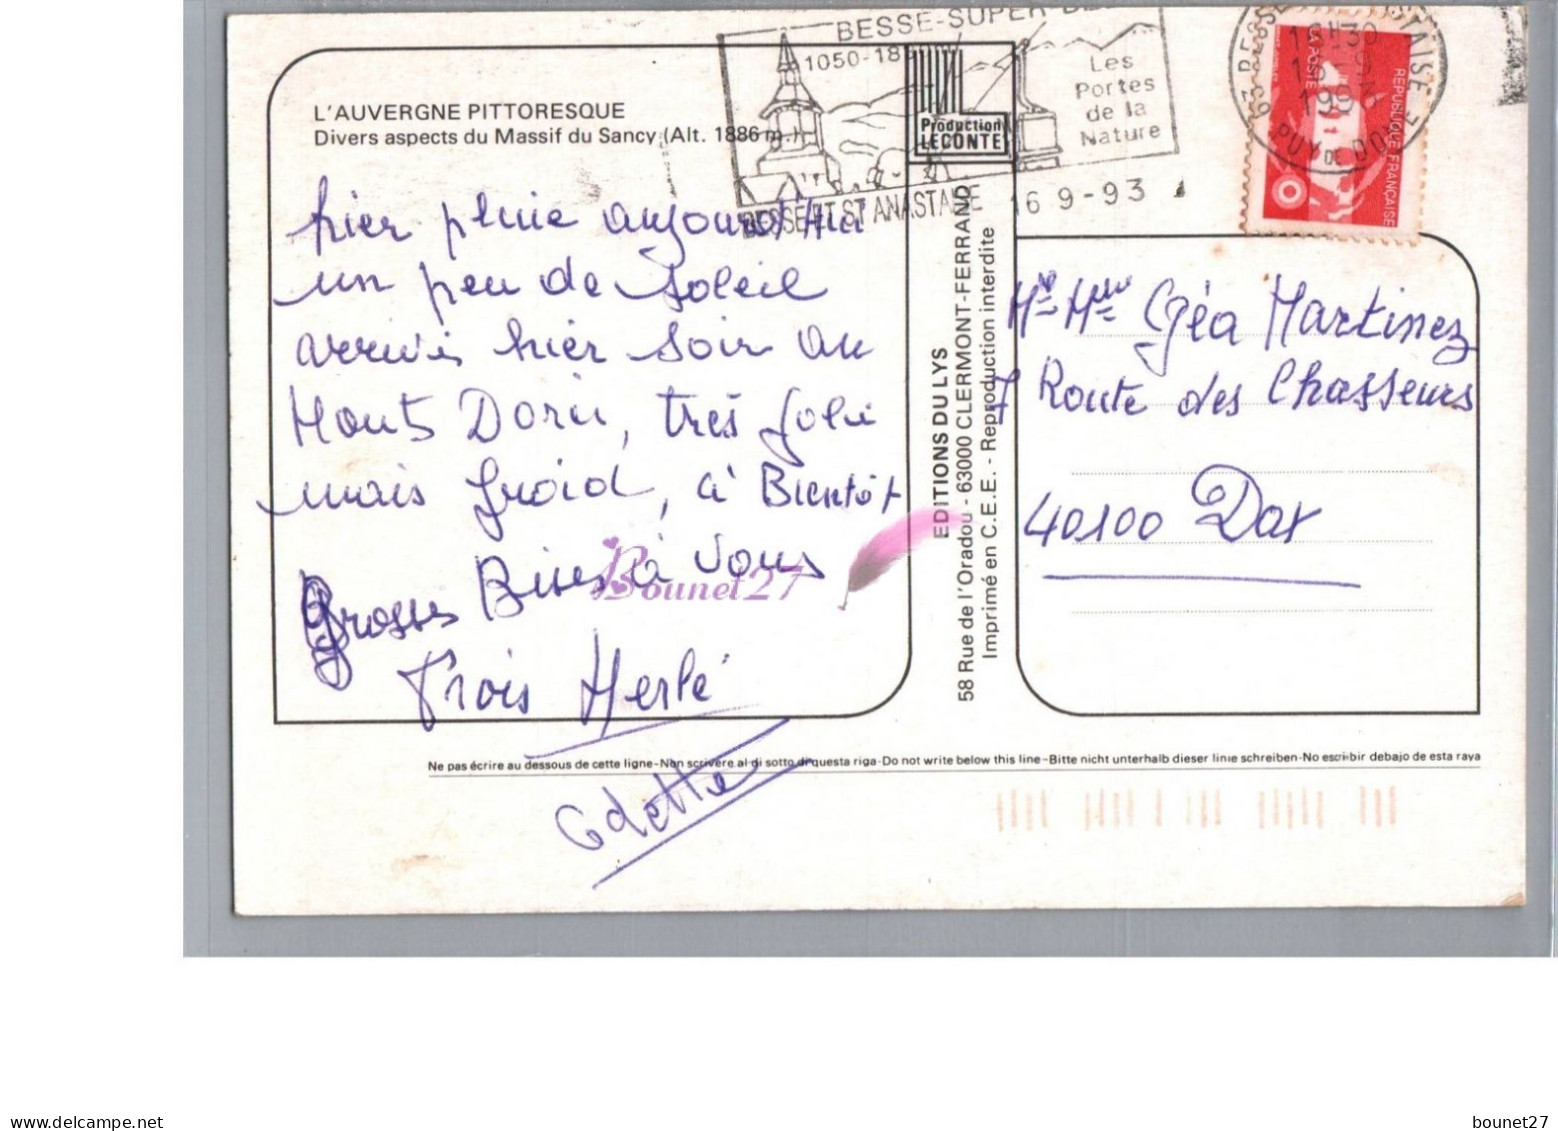 BESSE-SUPER-BE
1050-18
Les
Portes
de la
Nature
BESSE ET ST ANASTAISE
16 9-93
16H30
16-9
199
63 PUY DE DOME
REPUBLIQUE FRANÇAISE
LA POSTE
L'AUVERGNE PITTORESQUE
Divers aspects du Massif du Sancy (Alt. 1886 m.)
Production
LECONTE
hier pluie aujourd'hui
un peu de soleil
arrivés hier soir au
Mont Dorée, très jolie
mais froid, à Bientôt
Grosses Bises à vous
Trois Herlé
Odette
EDITIONS DU LYS
58 Rue de l'Oradou - 63000 CLERMONT-FERRAND
Imprimé en C.E.E. - Reproduction interdite
Mr Mme Géa Martinez
7 Route des Chasseurs
40100 Dax
Bounet27
Ne pas écrire au dessous de cette ligne-Non scrivere al di sotto di questa riga-Do not write below this line-Bitte nicht unterhalb dieser linie schreiben-No escribir debajo de esta raya
delcampe.net
bounet27